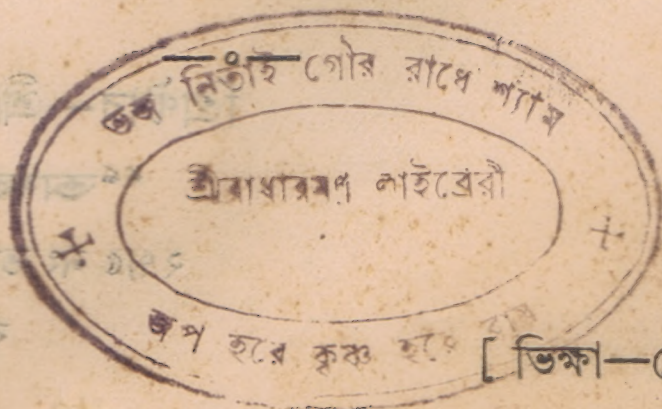 —০—
ভজ নিতাই গৌর রাধে শ্যাম
শ্রীরাধারমণ লাইব্রেরী
জপ হরে কৃষ্ণ হরে রাম
[ ভিক্ষা—